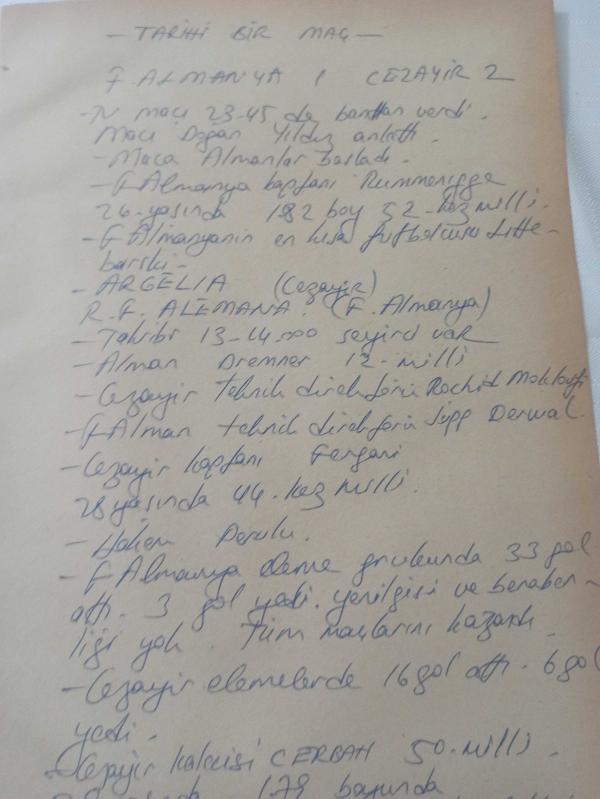 - TARİHİ BİR MAÇ -
F ALMANYA 1 CEZAYİR 2
- TV maçı 23-45 de banttan verdi.
Maçı Doğan Yıldız anlattı.
- Maça Almanlar başladı.
- F Almanya kaptanı Rummenigge
26 yaşında 182 boy 52-kez milli.
- F Almanyanın en kısa futbolcusu Litte-
barski-
- ARGELIA (Cezayir)
R.F. ALEMANA. (F. Almanya)
- Takribi 13-14.000 seyirci var
- Alman Dremner 12-milli
- Cezayir teknik direktörü Rochid
- F Alman teknik direktörü Jüpp Derwal.
- Cezayir kaptanı Fergani
28 yaşında 44. kez milli.
- Hakem Perulu.
- F Almanya eleme grubunda 33 gol
attı. 3 gol yedi. yenilgisi ve beraber-
liği yok. Tüm maçlarını kazandı.
- Cezayir elemelerde 16 gol attı. 6 gol
yedi.
- Cezayir kalecisi CERBAH 50. milli.
179 boyunda